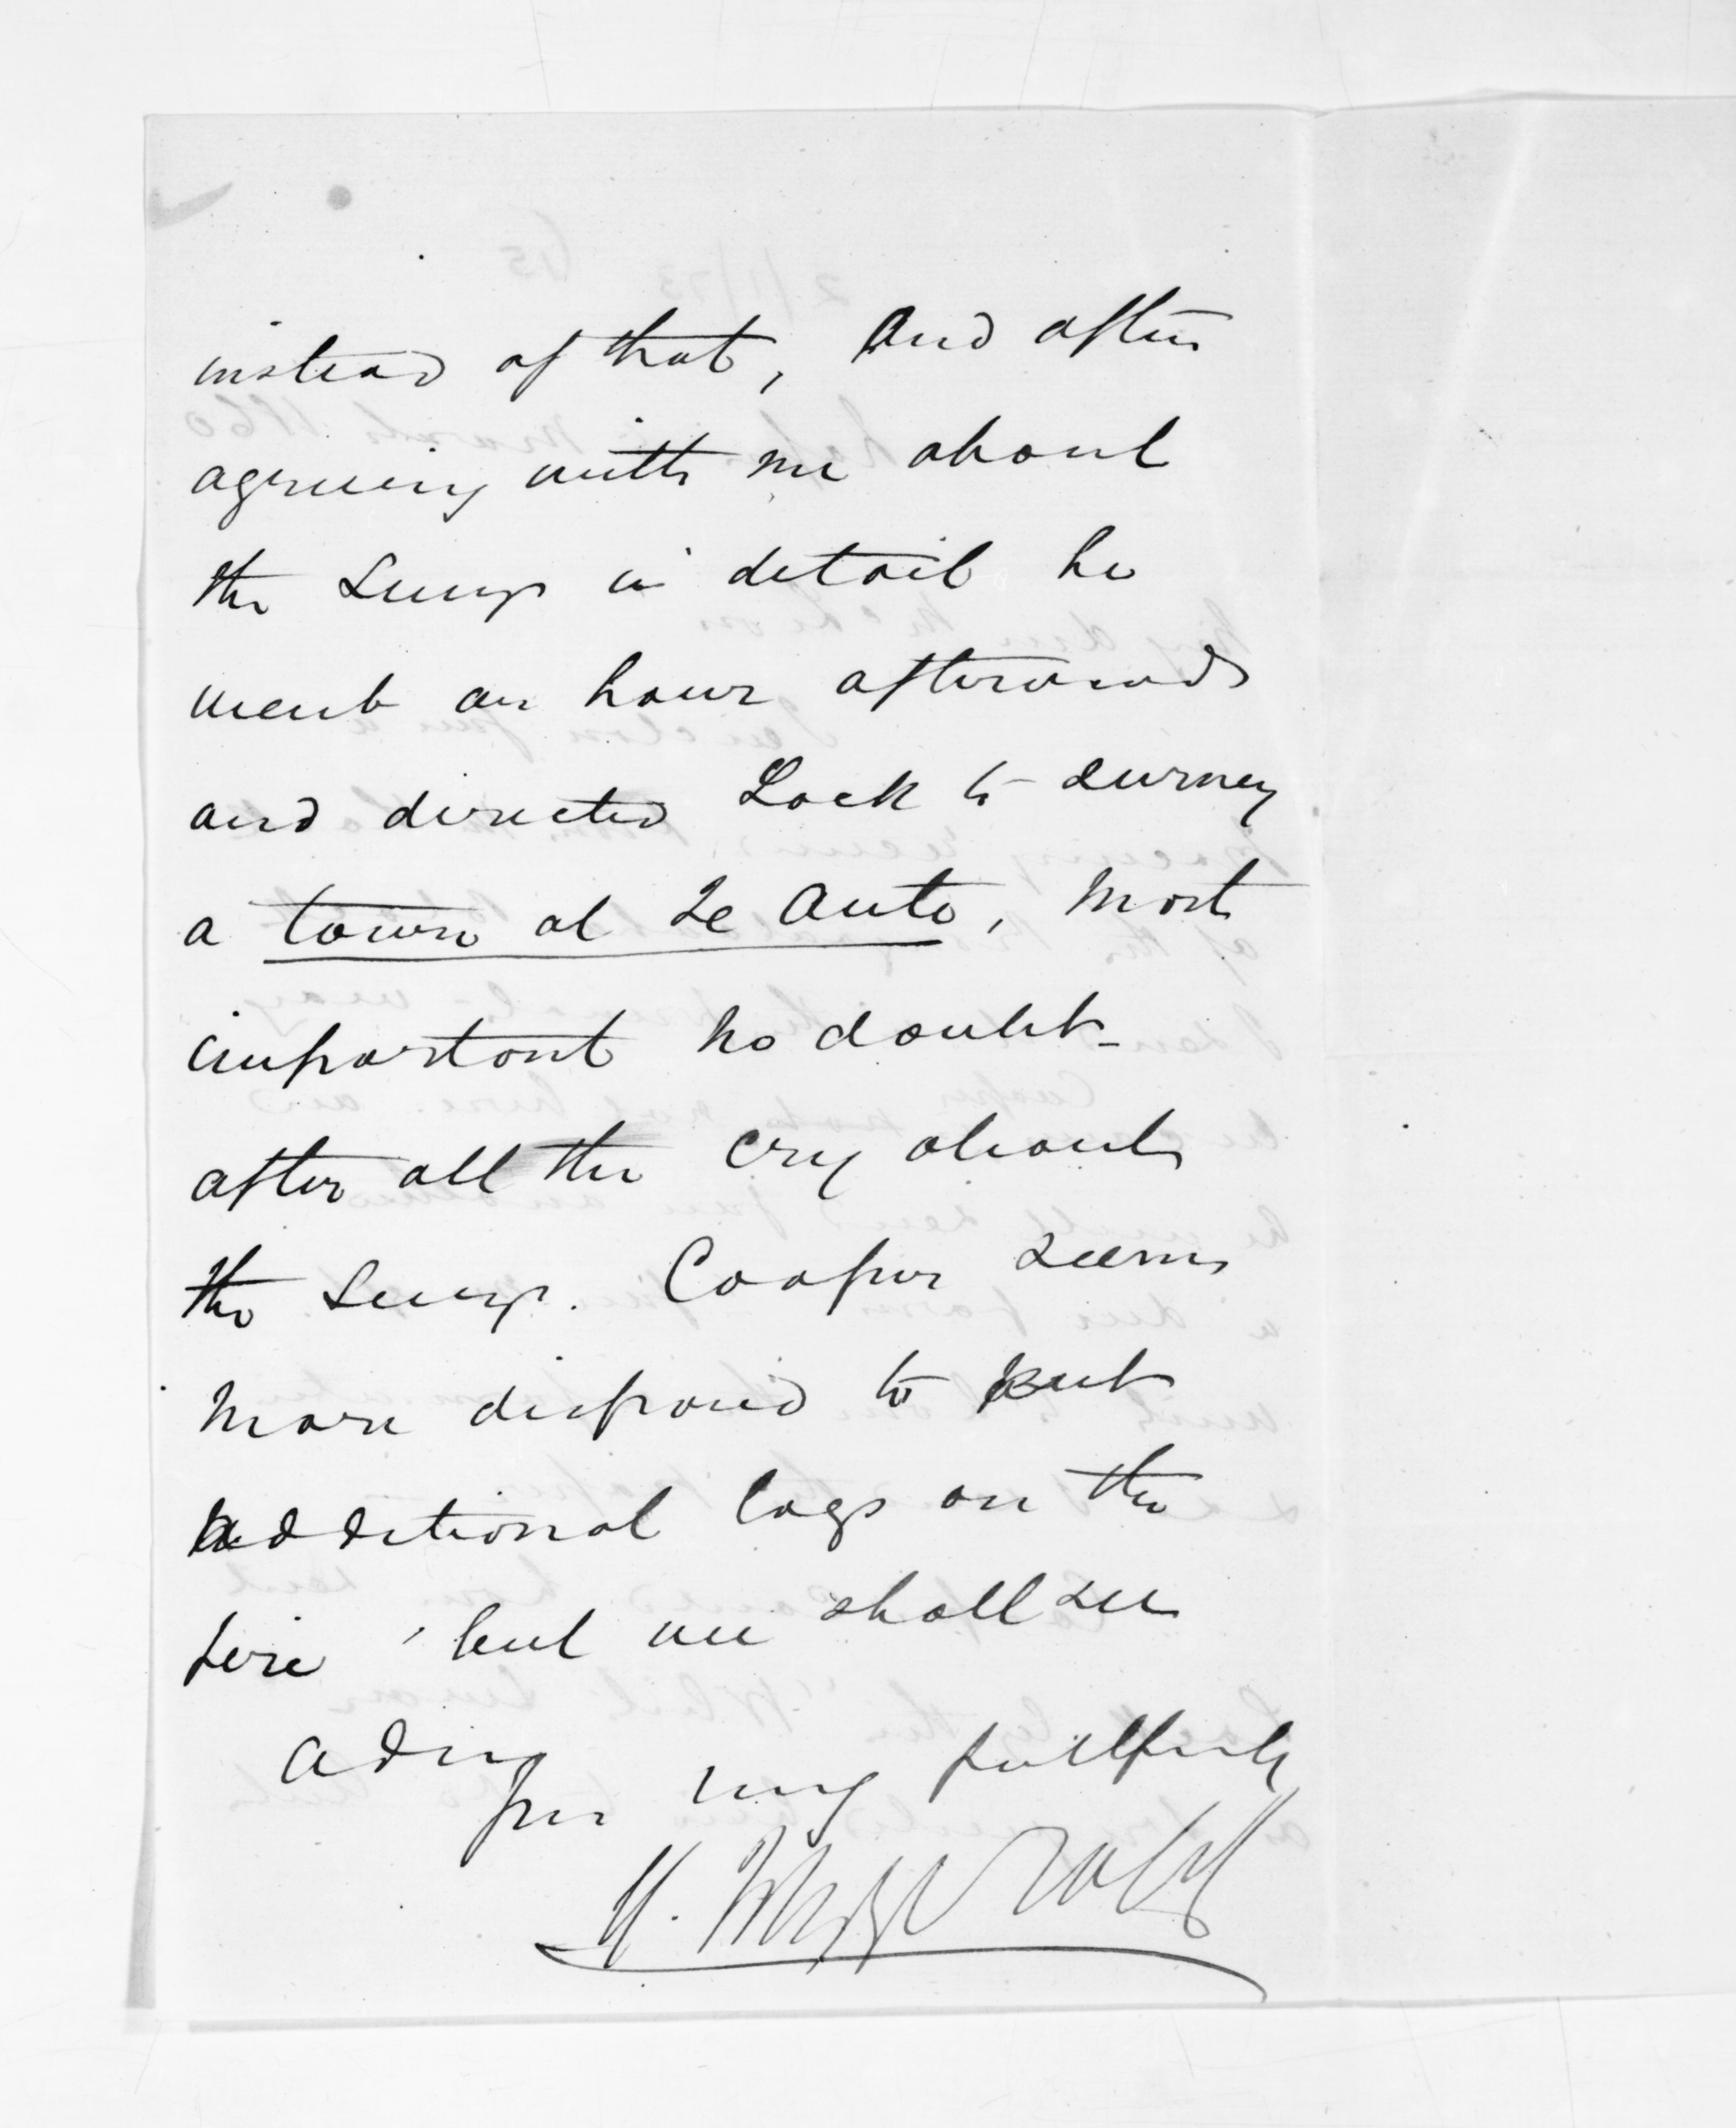 instead of that, and after
agreeing with me about
the Survey in detail he
went an hour afterwards
and directed Lock to survey
a town at Te Aute, most
important no doubt -
after all the cry about
the Survey. Cooper seems
more disposed to put
additional logs on the
fire, but we shall see
Adieu
for my faithfully